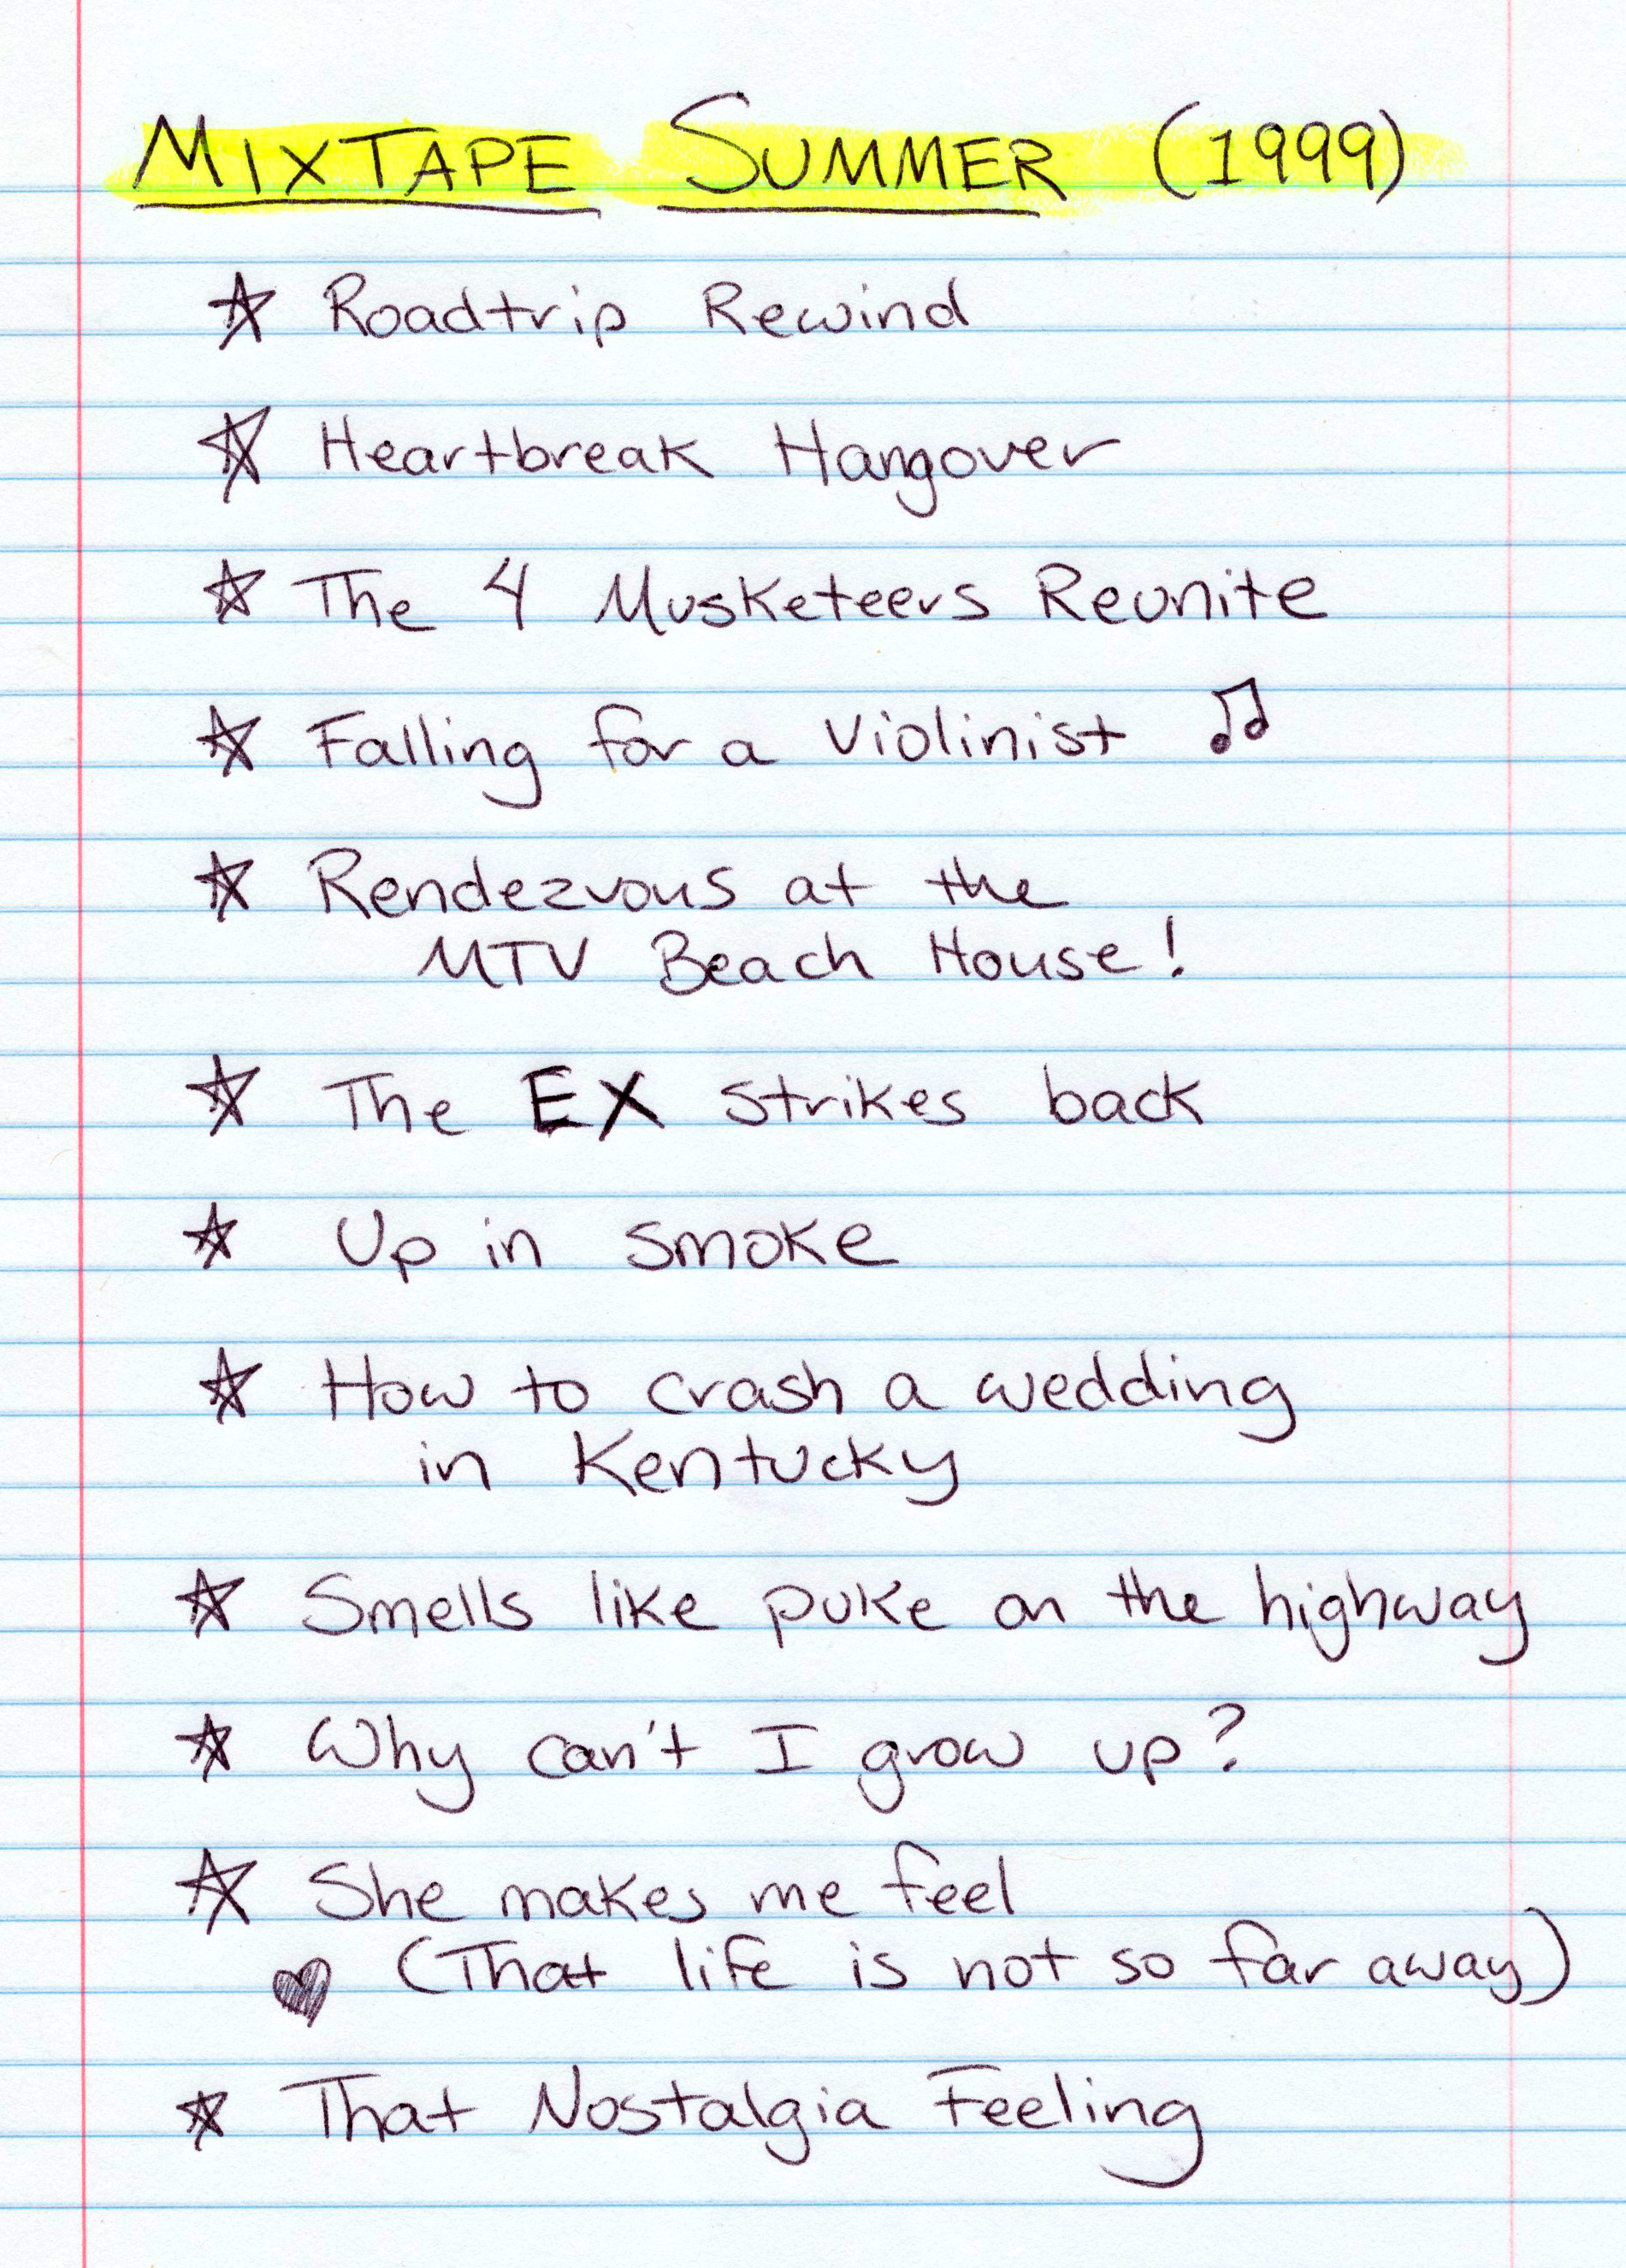 MIXTAPE SUMMER (1999)
☆ Roadtrip Rewind
☆ Heartbreak Hangover
☆ The 4 Musketeers Reunite
☆ Falling for a Violinist ♫
☆ Rendezvous at the
MTV Beach House!
☆ The EX strikes back
☆ Up in smoke
☆ How to crash a wedding
in Kentucky
☆ Smells like puke on the highway
☆ Why can't I grow up?
☆ She makes me feel
♥ (That life is not so far away)
☆ That Nostalgia Feeling